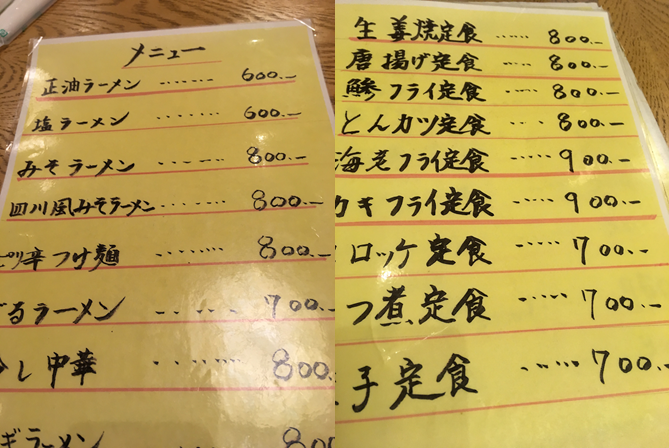 メニュー
正油ラーメン ……… 600.–
塩ラーメン ……… 600.–
みそラーメン ……… 800.–
四川風みそラーメン ……… 800.–
ピリ辛つけ麺 ……… 800.–
るラーメン ……… 700.–
し中華 ……… 800.
ギラーメン ……… 80
生姜焼定食 …… 800.–
唐揚げ定食 …… 800.–
鯵フライ定食 …… 800.–
とんカツ定食 …… 800.–
海老フライ定食 …… 900.–
カキフライ定食 …… 900.–
ロッケ定食 …… 700.–
つ煮定食 …… 700.–
子定食 …… 700.–